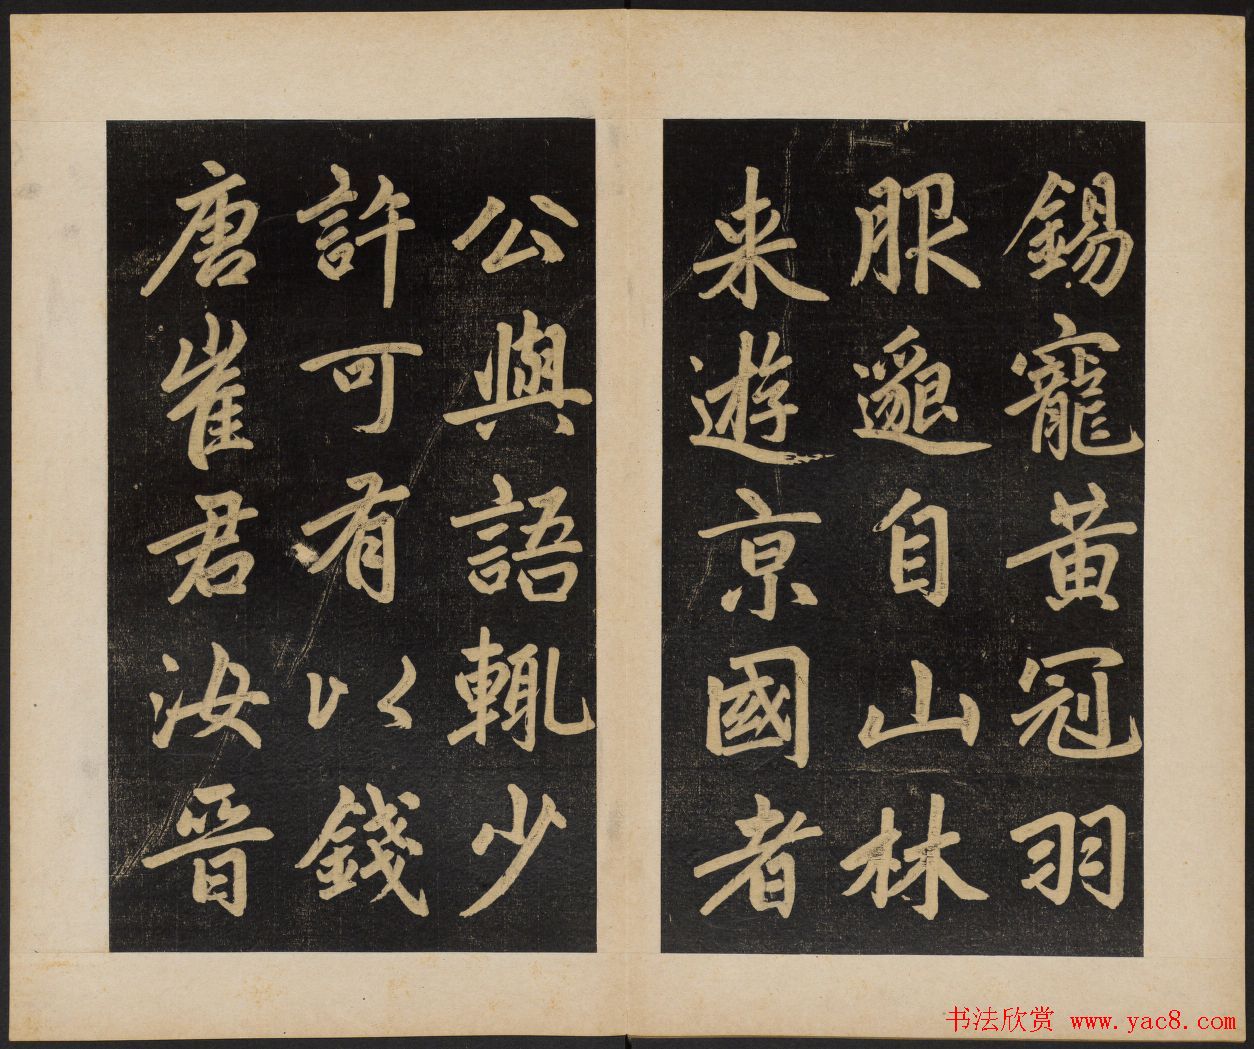 錫寵黃冠羽
服邈自山林
来遊京國者
公與語輒少
許可有以錢
唐崔君汝晉
书法欣赏 www.yac8.com